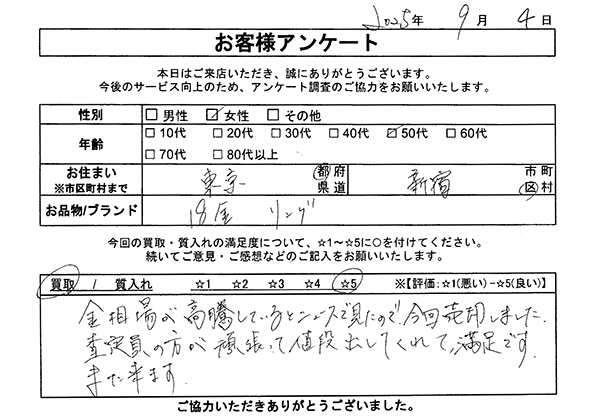 2025年 9月 4日
お客様アンケート
本日はご来店いただき、誠にありがとうございます。
今後のサービス向上のため、アンケート調査のご協力をお願いいたします。
性別 □ 男性 ☑ 女性 □ その他
年齢 □ 10代 □ 20代 □ 30代 □ 40代 ☑ 50代 □ 60代
□ 70代 □ 80代以上
お住まい
※市区町村まで 東京 都府県道 新宿 市町区村
お品物/ブランド 18金 リング
今回の買取・質入れの満足度について、☆1～☆5に○を付けてください。
続いてご意見・ご感想などのご記入をお願いいたします。
買取 / 質入れ ☆1 ☆2 ☆3 ☆4 ☆5 ※【評価:☆1(悪い)-☆5(良い)】
金相場が高騰しているとニュースで見たので、今回売却しました。
査定員の方が頑張って値段出してくれて、満足です。
また来ます。
ご協力いただきありがとうございました。